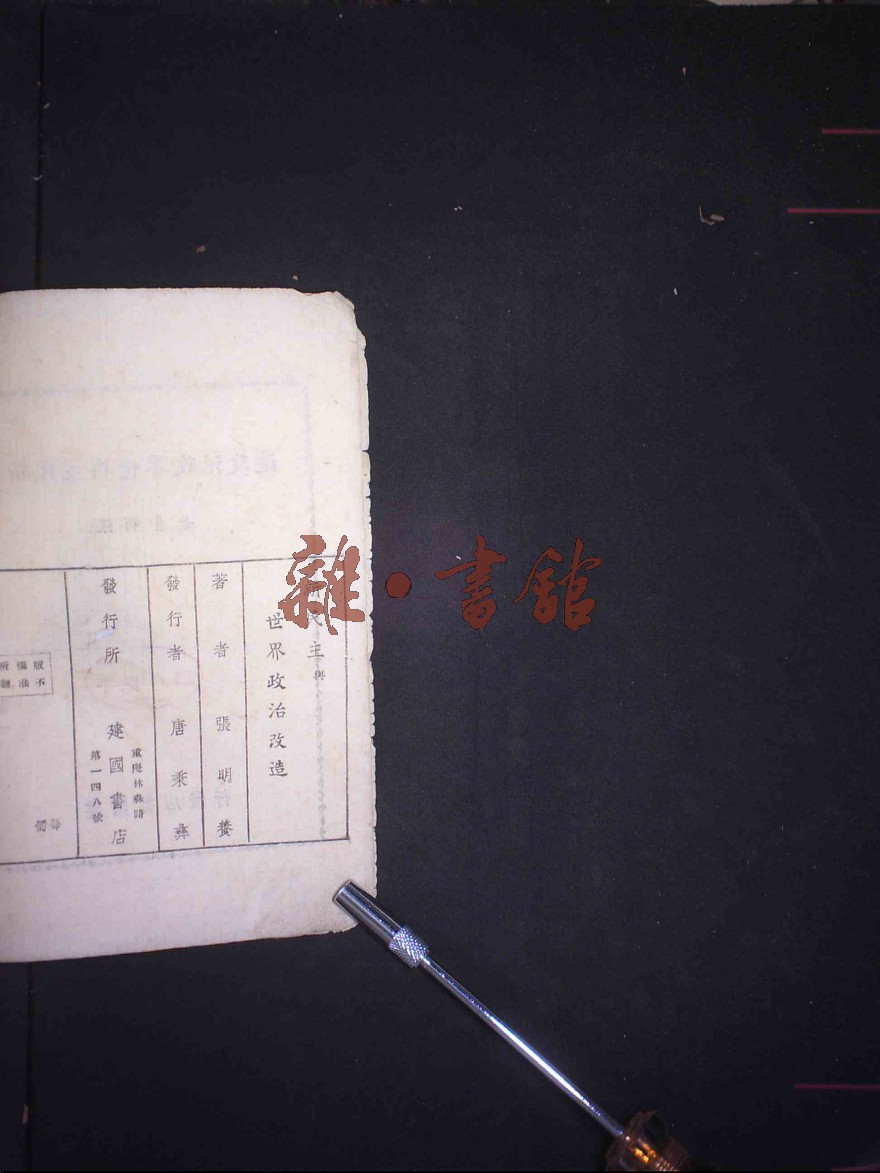 新民主與
世界政治改造
著者張明養
發行者唐秉彝
發行所建國書店
重慶林森路
第一四八號
版權所
不准翻
每
價
雜·書館